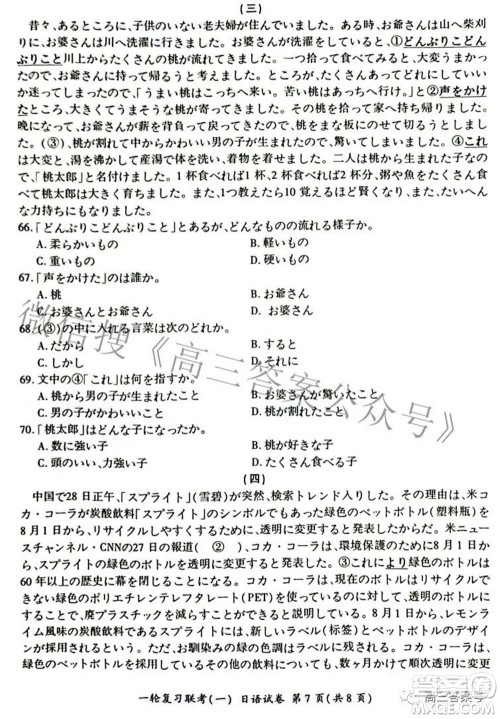 (三)
昔々、あるところに、子供のいない老夫婦が住んでいました。ある時、お爺さんは山へ柴刈
りに、お婆さんは川へ洗濯に行きました。お婆さんが洗濯をしていると、①どんぶりこどん
ぶりこと川上からたくさんの桃が流れてきました。一つ拾って食べてみると、大変うまかっ
たので、お爺さんに持っていってやろうと思いましたが、どれがうまくてどれがまずいのか
迷ってしまいましたので、「うまい桃はこっちへ来い。苦い桃はあっちへ行け」と②声をかけ
たところ、大きくてうまそうな桃が寄ってきました。その桃を拾って家へ持ち帰りました。
晩になって、お爺さんが薪を背負って戻ってきたので、桃をまな板にのせて切ろうとしまし
た。(③)、桃が割れて中からかわいい男の子が生まれたので、驚いてしまいました。④これ
は大変と、湯を沸かして産湯で体を洗い、着物を着せました。二人は桃から生まれた子なの
で、「桃太郎」と名付けました。1杯食べれば1杯、2杯食べれば2杯分、粥や魚をたくさん食
べて、桃太郎は大きく育ちました。また、1つ教えたら10覚えるほどかしこく、たいへん
な力持ちにもなりました。
66.「どんぶりこどんぶりこと」とあるが、どんなものの流れる様子か。
A. 柔らかいもの
B. 軽いもの
C. 重いもの
D. 硬いもの
67.「声をかけた」のは誰か。
A. 桃
B. お爺さん
C. お婆さんとお爺さん
D. お婆さん
68. (③)の中に入れる言葉は次のどれか。
A. だから
B. すると
C. しかし
D. それに
69. 文中の④「これ」は何を指すか。
A. 桃から男の子が生まれたこと
B. お婆さんが驚いたこと
C. 男の子がかわいかったこと
D. 桃が割れたこと
70.「桃太郎」はどんな子になったか。
A. 数に強い子
B. 桃が好きな子
C. 頭のいい、力強い子
D. たくさん食べる子
(四)
中国で28日正午、「スプライト」(雪碧)が突然、検索トレンド入りした。その理由は、米コ
カ・コーラが炭酸飲料「スプライト」のシンボルでもある緑色のペットボトル(塑料瓶)を
8月1日から、リサイクルしやすいように、透明に変更すると発表したからだ。米ニュー
スチャンネル・CNNの27日の報道( ② )、コカ・コーラは、環境保護のために8月1日か
ら、スプライトのボトルを透明に変更する計画で、これにより緑色のボトルは
60年以上の歴史に幕を閉じることになる。コカ・コーラは、緑色のボトルはリサイクルでき
ない緑色のポリエチレンテレフタレート(PET)を使っているため、透明に変更すること
で、廃プラスチックを減らすことができると説明している。8月1日から、レモンライ
ム風味の炭酸飲料であるスプライトは、新しいラベル(标签)とペットボトルのデザイ
ンが導入される。ただ、お馴染みの緑の色調はラベルに残される。コカ・コーラは、その他の
緑色のペットボトルを使用している飲料についても、今後数ヶ月以内に、透明に変更する
一轮复习联考(一) 日语试卷 第7页(共8页)
微信搜《高三答案公众号》
高三答案号